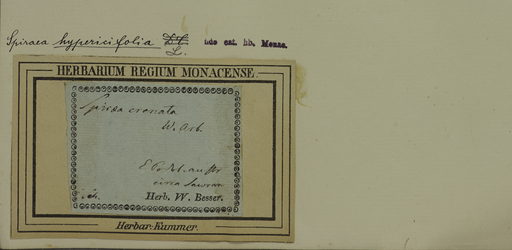 Spiraea hypericifolia D.C. ndo ext. hb. Monac.
L.
HERBARIUM REGIUM MONACENSE.
Spiraea crenata
W. Arb.
circa Sawran
Herb. W. Besser.
Herbar: Kummer.